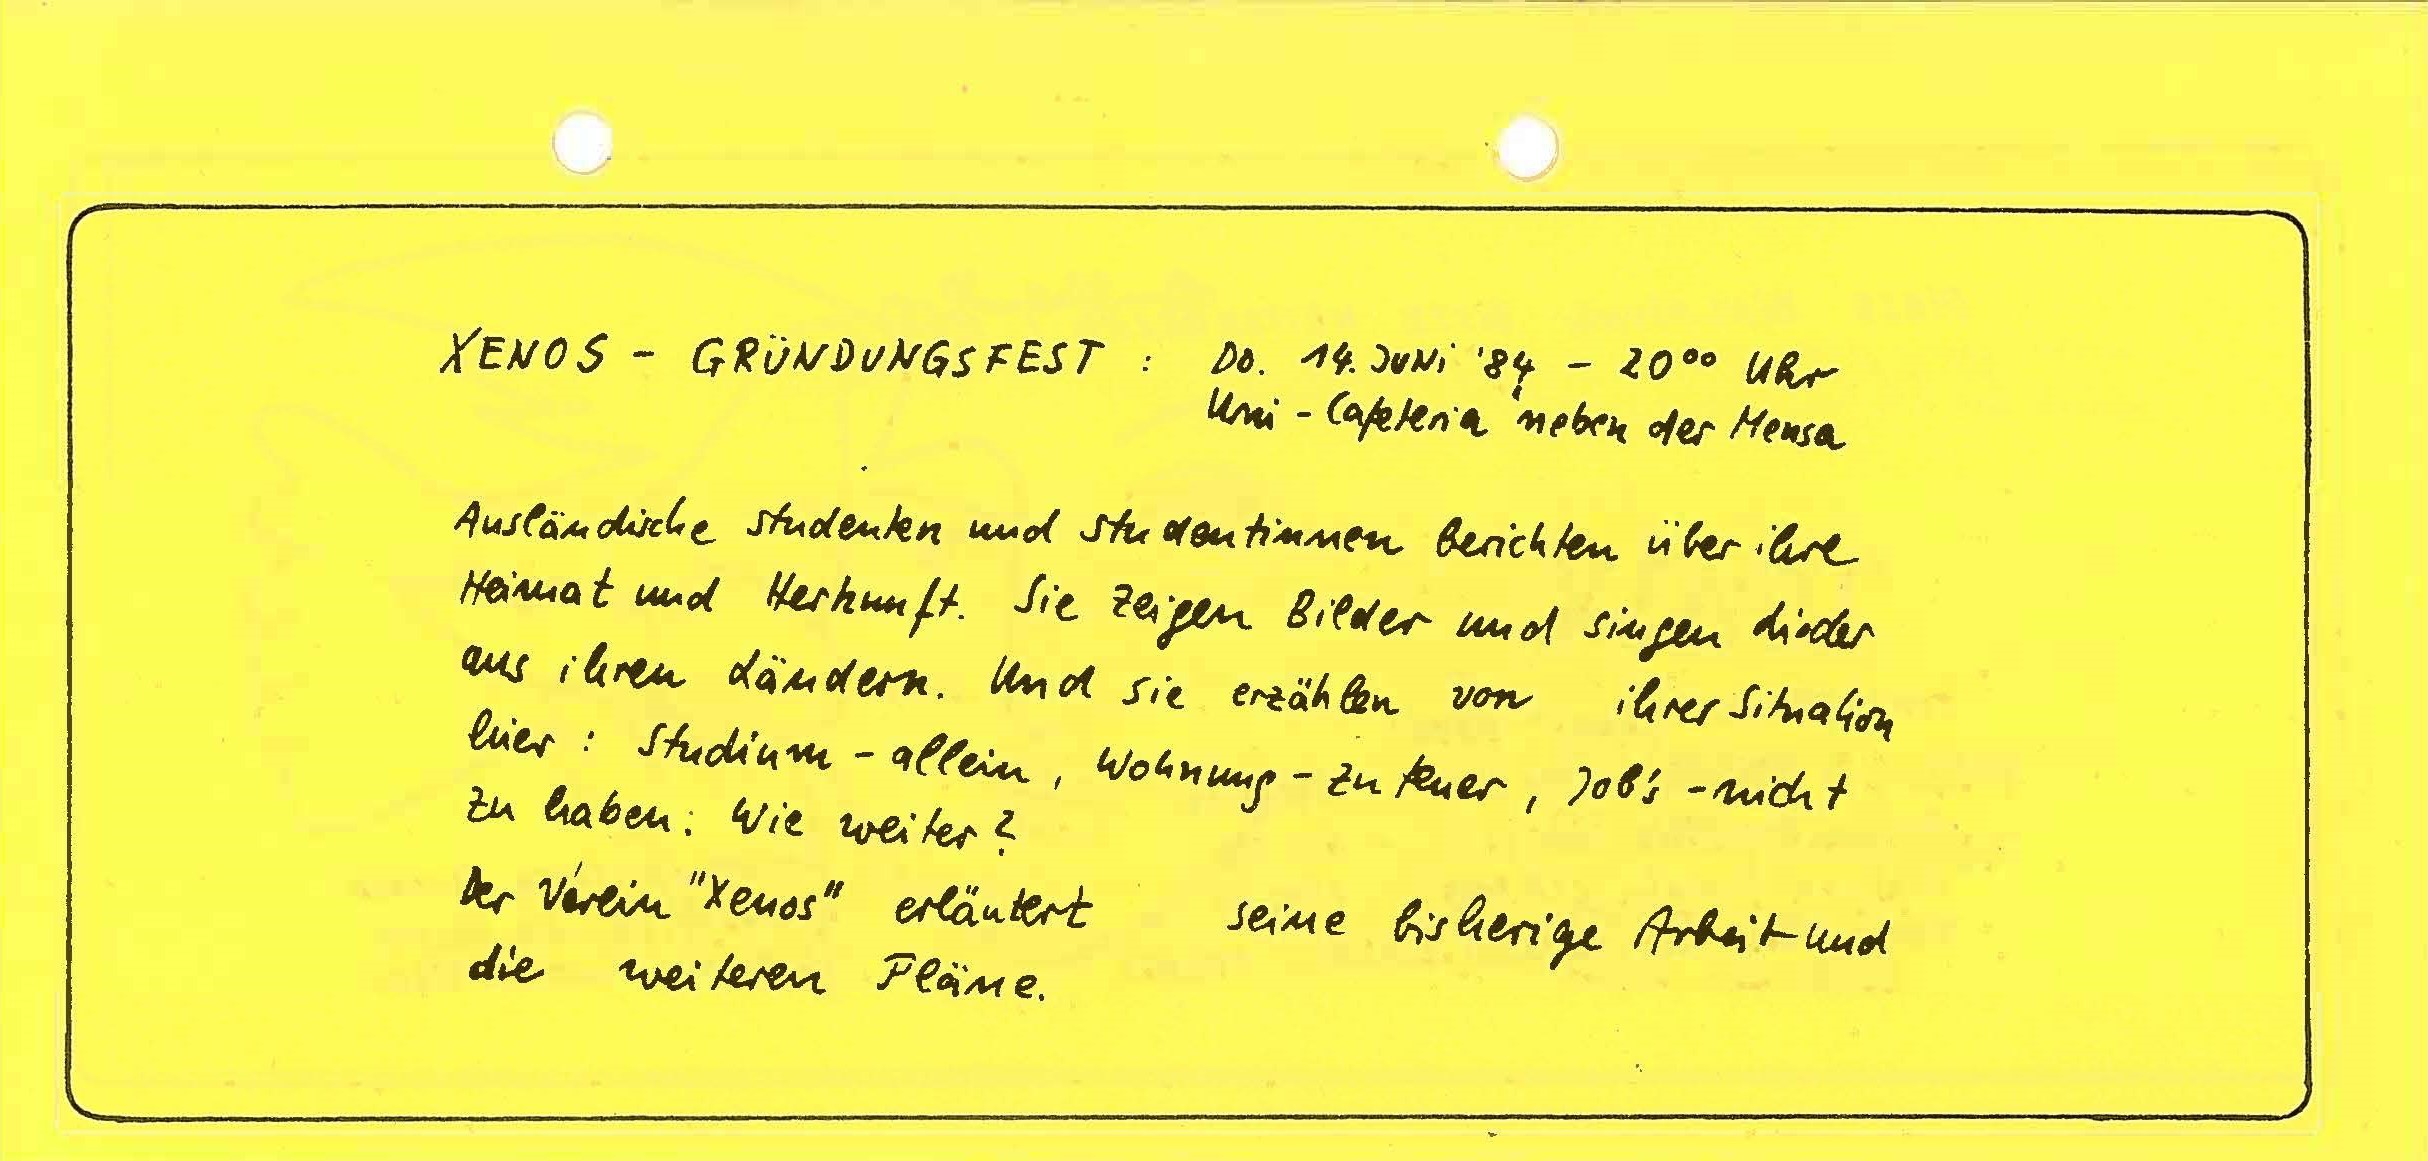 XENOS - GRÜNDUNGSFEST : Do. 14. JUNI '84 - 20⁰⁰ Uhr
Uni - Cafeteria neben der Mensa
Ausländische Studenten und Studentinnen berichten über ihre
Heimat und Herkunft. Sie zeigen Bilder und singen Lieder
aus ihren Ländern. Und sie erzählen von ihrer Situation
hier : Studium - allein, Wohnung - zu teuer, Job's - nicht
zu haben. Wie weiter?
Der Verein "Xenos" erläutert seine bisherige Arbeit und
die weiteren Pläne.